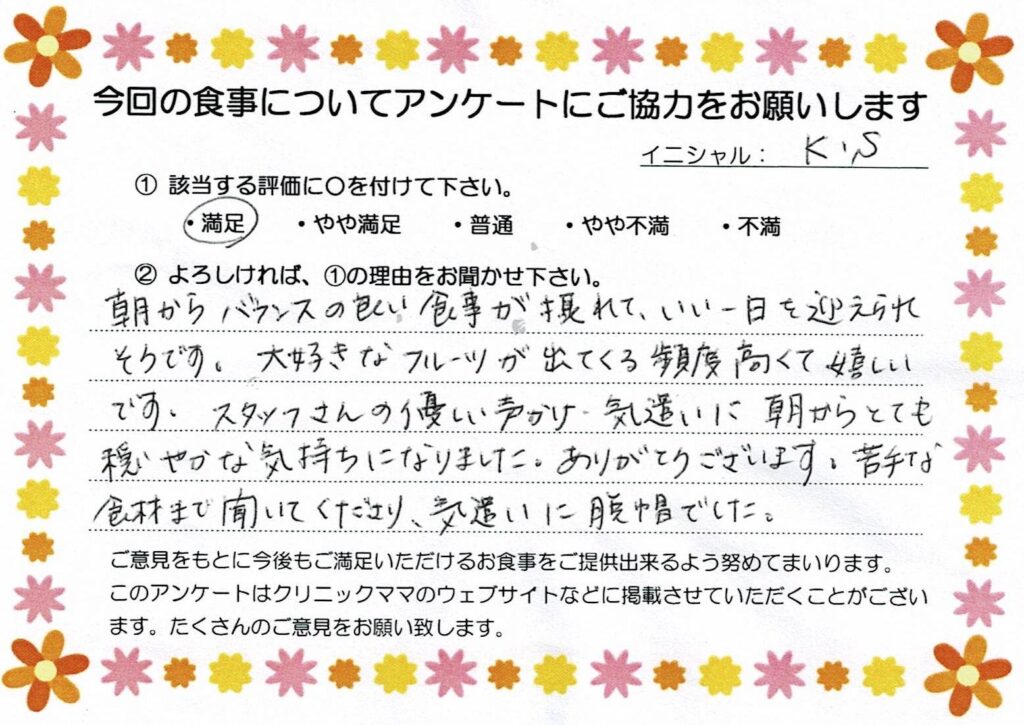 今回の食事についてアンケートにご協力をお願いします
イニシャル: K.S
① 該当する評価に〇を付けて下さい。
・満足 ・やや満足 ・普通 ・やや不満 ・不満
② よろしければ、①の理由をお聞かせ下さい。
朝からバランスの良い食事が摂れて、いい一日を迎えられ
そうです。大好きなフルーツが出てくる頻度高くて嬉しい
です。スタッフさんの優しい声かけ・気遣いに朝からとても
穏やかな気持ちになりました。ありがとうございます。苦手な
食材まで聞いてくださり、気遣いに脱帽でした。
ご意見をもとに今後もご満足いただけるお食事をご提供出来るよう努めてまいります。
このアンケートはクリニックママのウェブサイトなどに掲載させていただくことがござい
ます。たくさんのご意見をお願い致します。